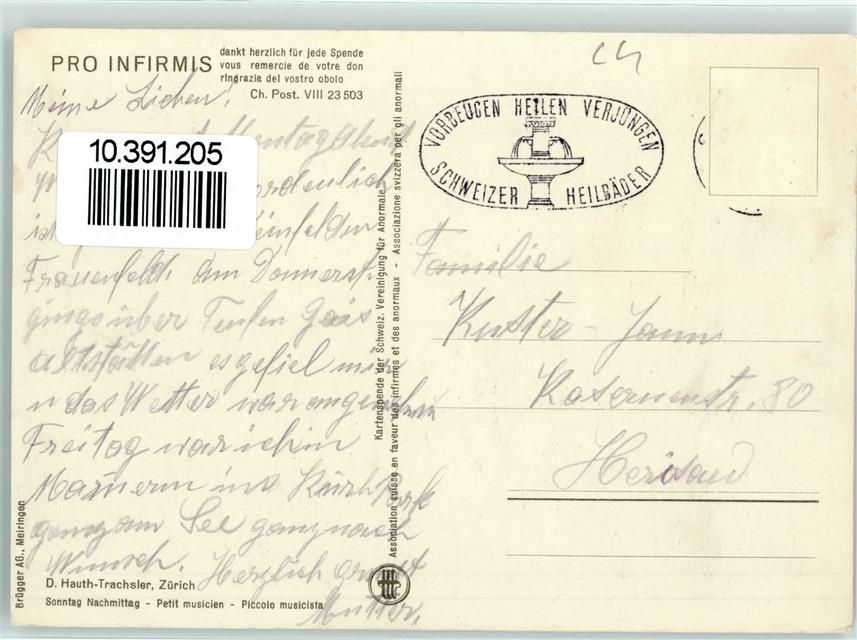 PRO INFIRMIS
dankt herzlich für jede Spende
vous remercie de votre don
ringrazia del vostro obolo
Ch. Post. VIII 23 503
Meine Lieben!
Montag Abend
10.391.205
ordenlich
ist
Frauenfeld. Am Donnerst.
gings über Teufen Gais
Altstätten es gefiel mir
u das Wetter war angenehm
Freitag war ich in
ganz am See ganz nach
Wunsch. Herzlich grüsst
Mutter.
D. Hauth-Trachsler, Zürich
Sonntag Nachmittag - Petit musicien - Piccolo musicista
Brügger AG., Meiringen
Kartenspende der Schweiz. Vereinigung für Anormale
Association suisse en faveur des infirmes et des anormaux - Associazione svizzera per gli anormali
VORBEUGEN HEILEN VERJÜNGEN
SCHWEIZER HEILBÄDER
Familie
Kuster - Jann
Kasernenstr. 80
Herisau